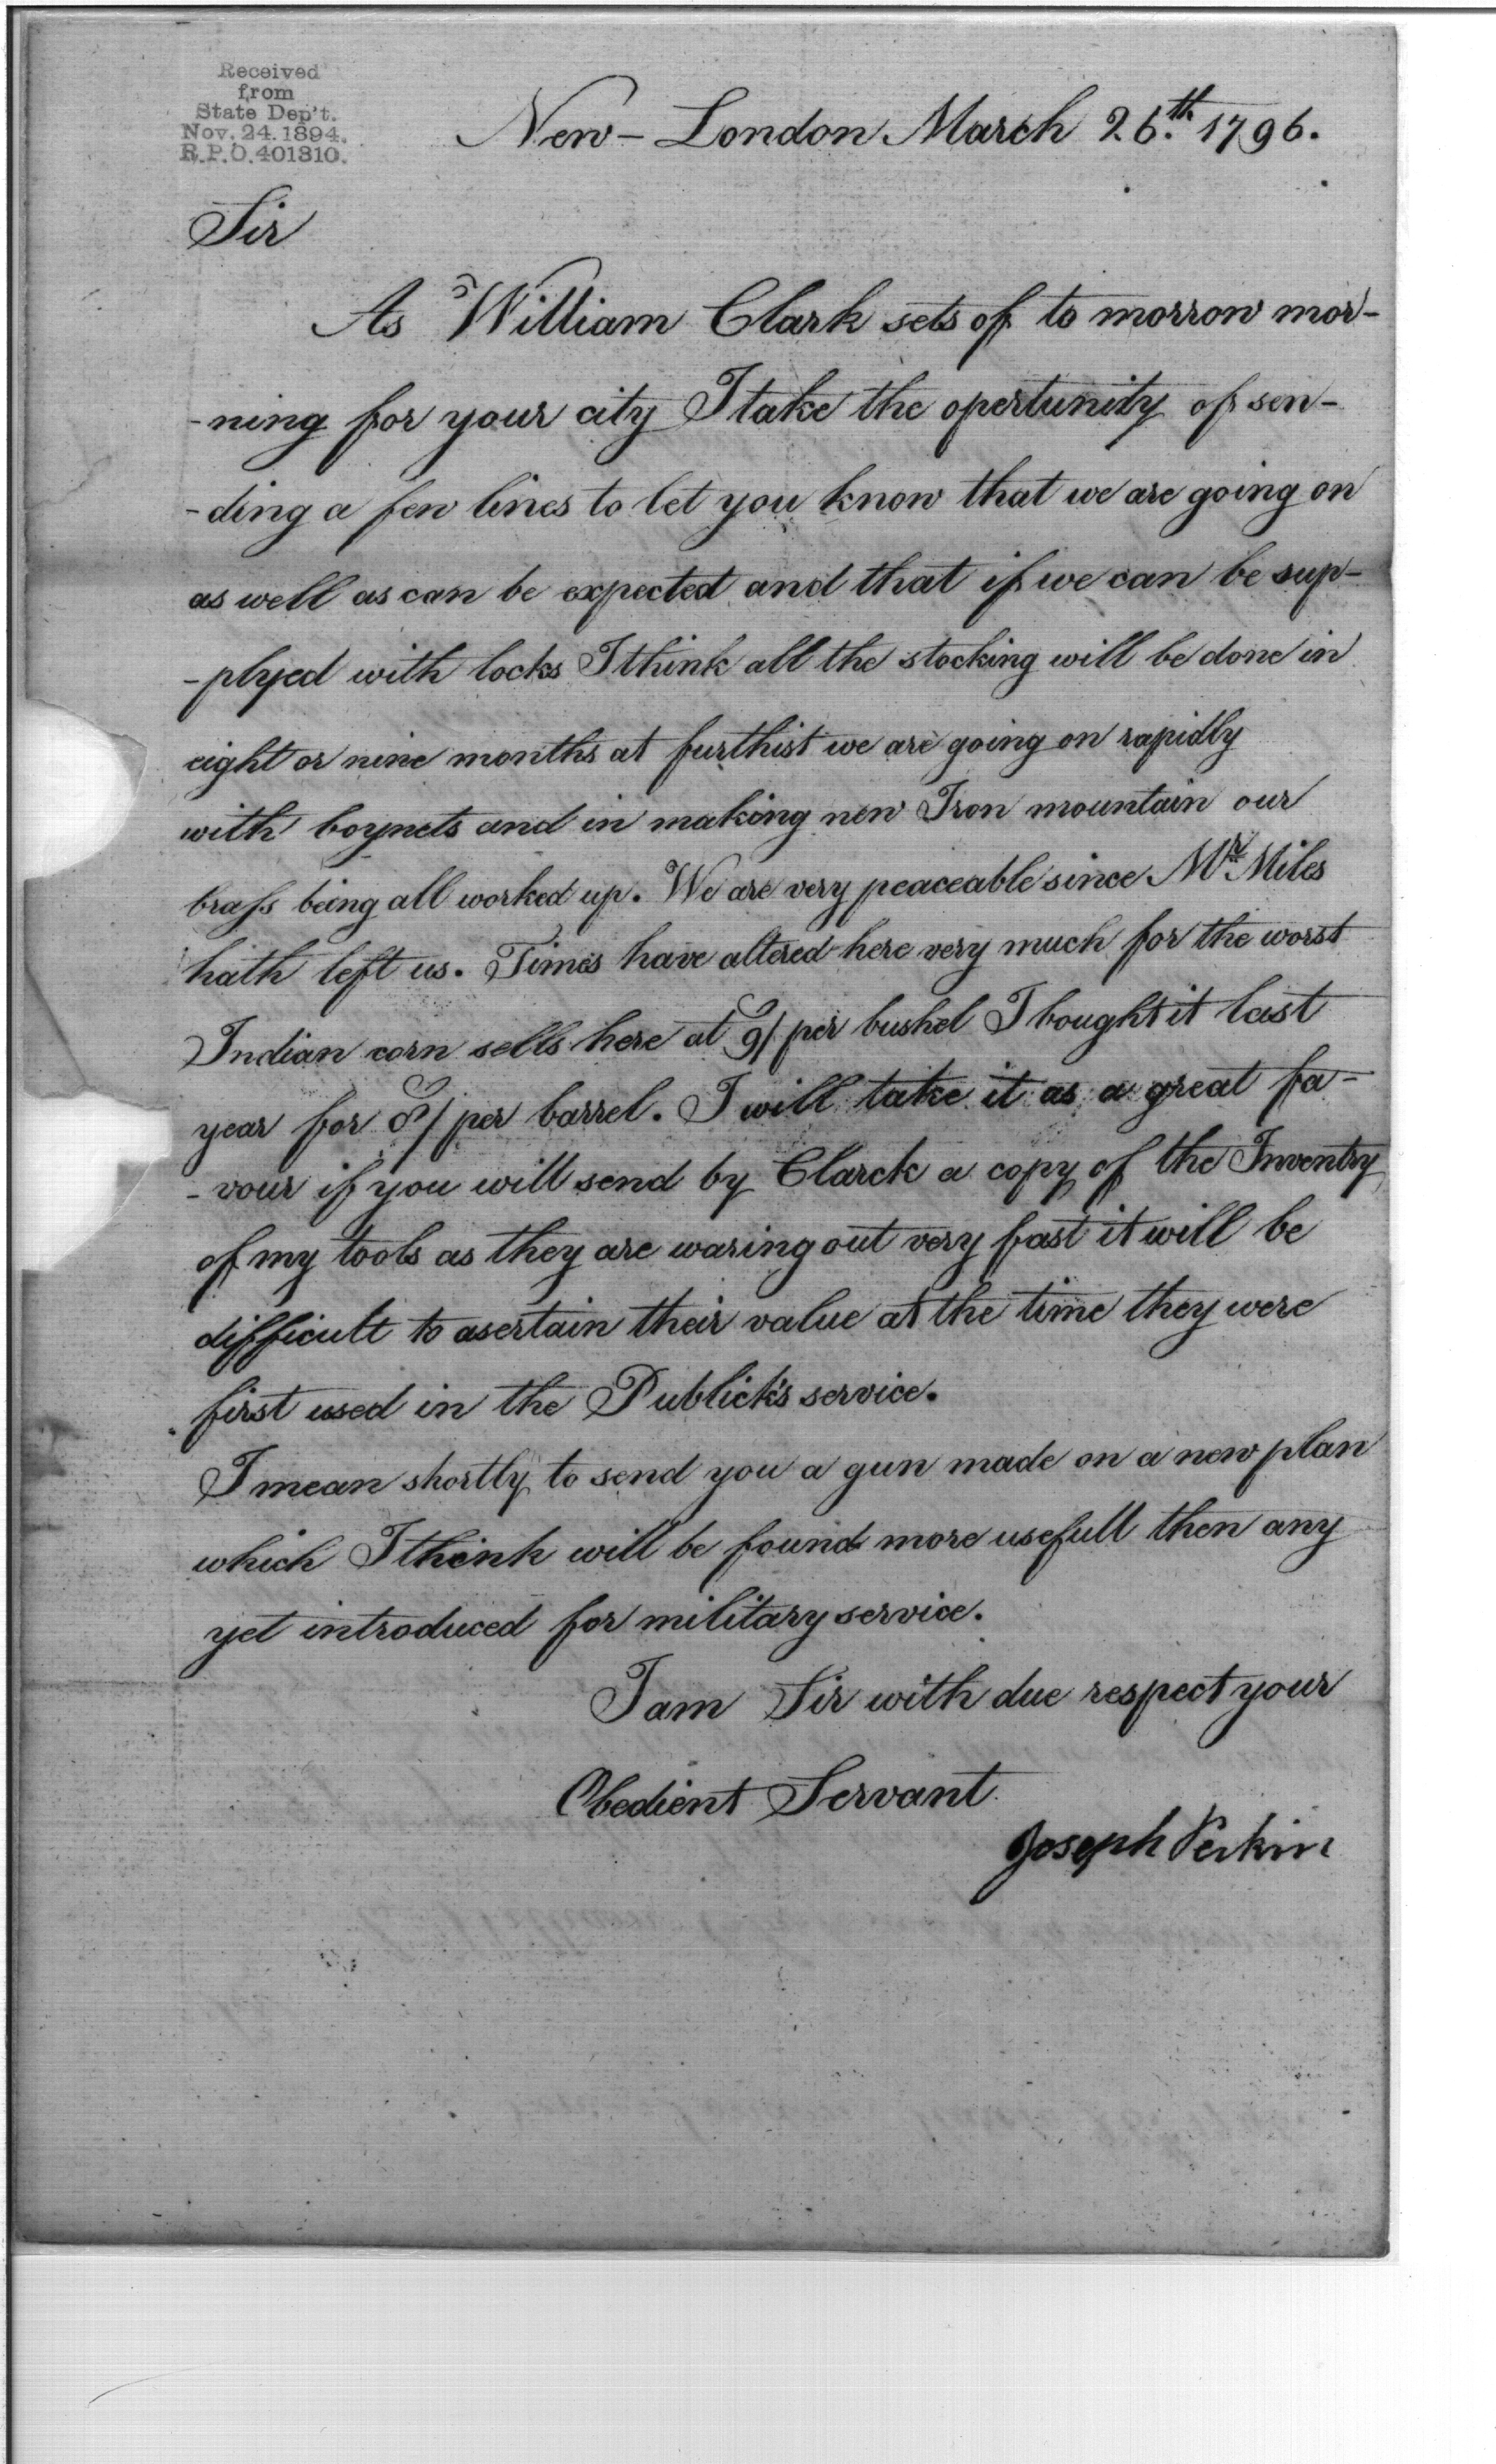 Received
from
State Dep't.
Nov. 24. 1894.
R.P.O. 401310.
New-London March 26.th 1796.
Sir
As William Clark sets of to morrow mor-
-ning for your city I take the opertunity of sen-
-ding a few lines to let you know that we are going on
as well as can be expected and that if we can be sup-
-plyed with locks I think all the stocking will be done in
eight or nine months at furthist we are going on rapidly
with boynets and in making new Iron mountain our
brass being all worked up. We are very peaceable since Mr Miles
hath left us. Times have altered here very much for the worst
Indian corn sells here at 9/ per bushel I bought it last
year for 8/ per barrel. I will take it as a great fa-
-vour if you will send by Clarck a copy of the Inventry
of my tools as they are waring out very fast it will be
difficult to asertain their value at the time they were
first used in the Publick's service.
I mean shortly to send you a gun made on a new plan
which I think will be found more usefull then any
yet introduced for military service.
I am Sir with due respect your
Obedient Servant.
Joseph Perkin